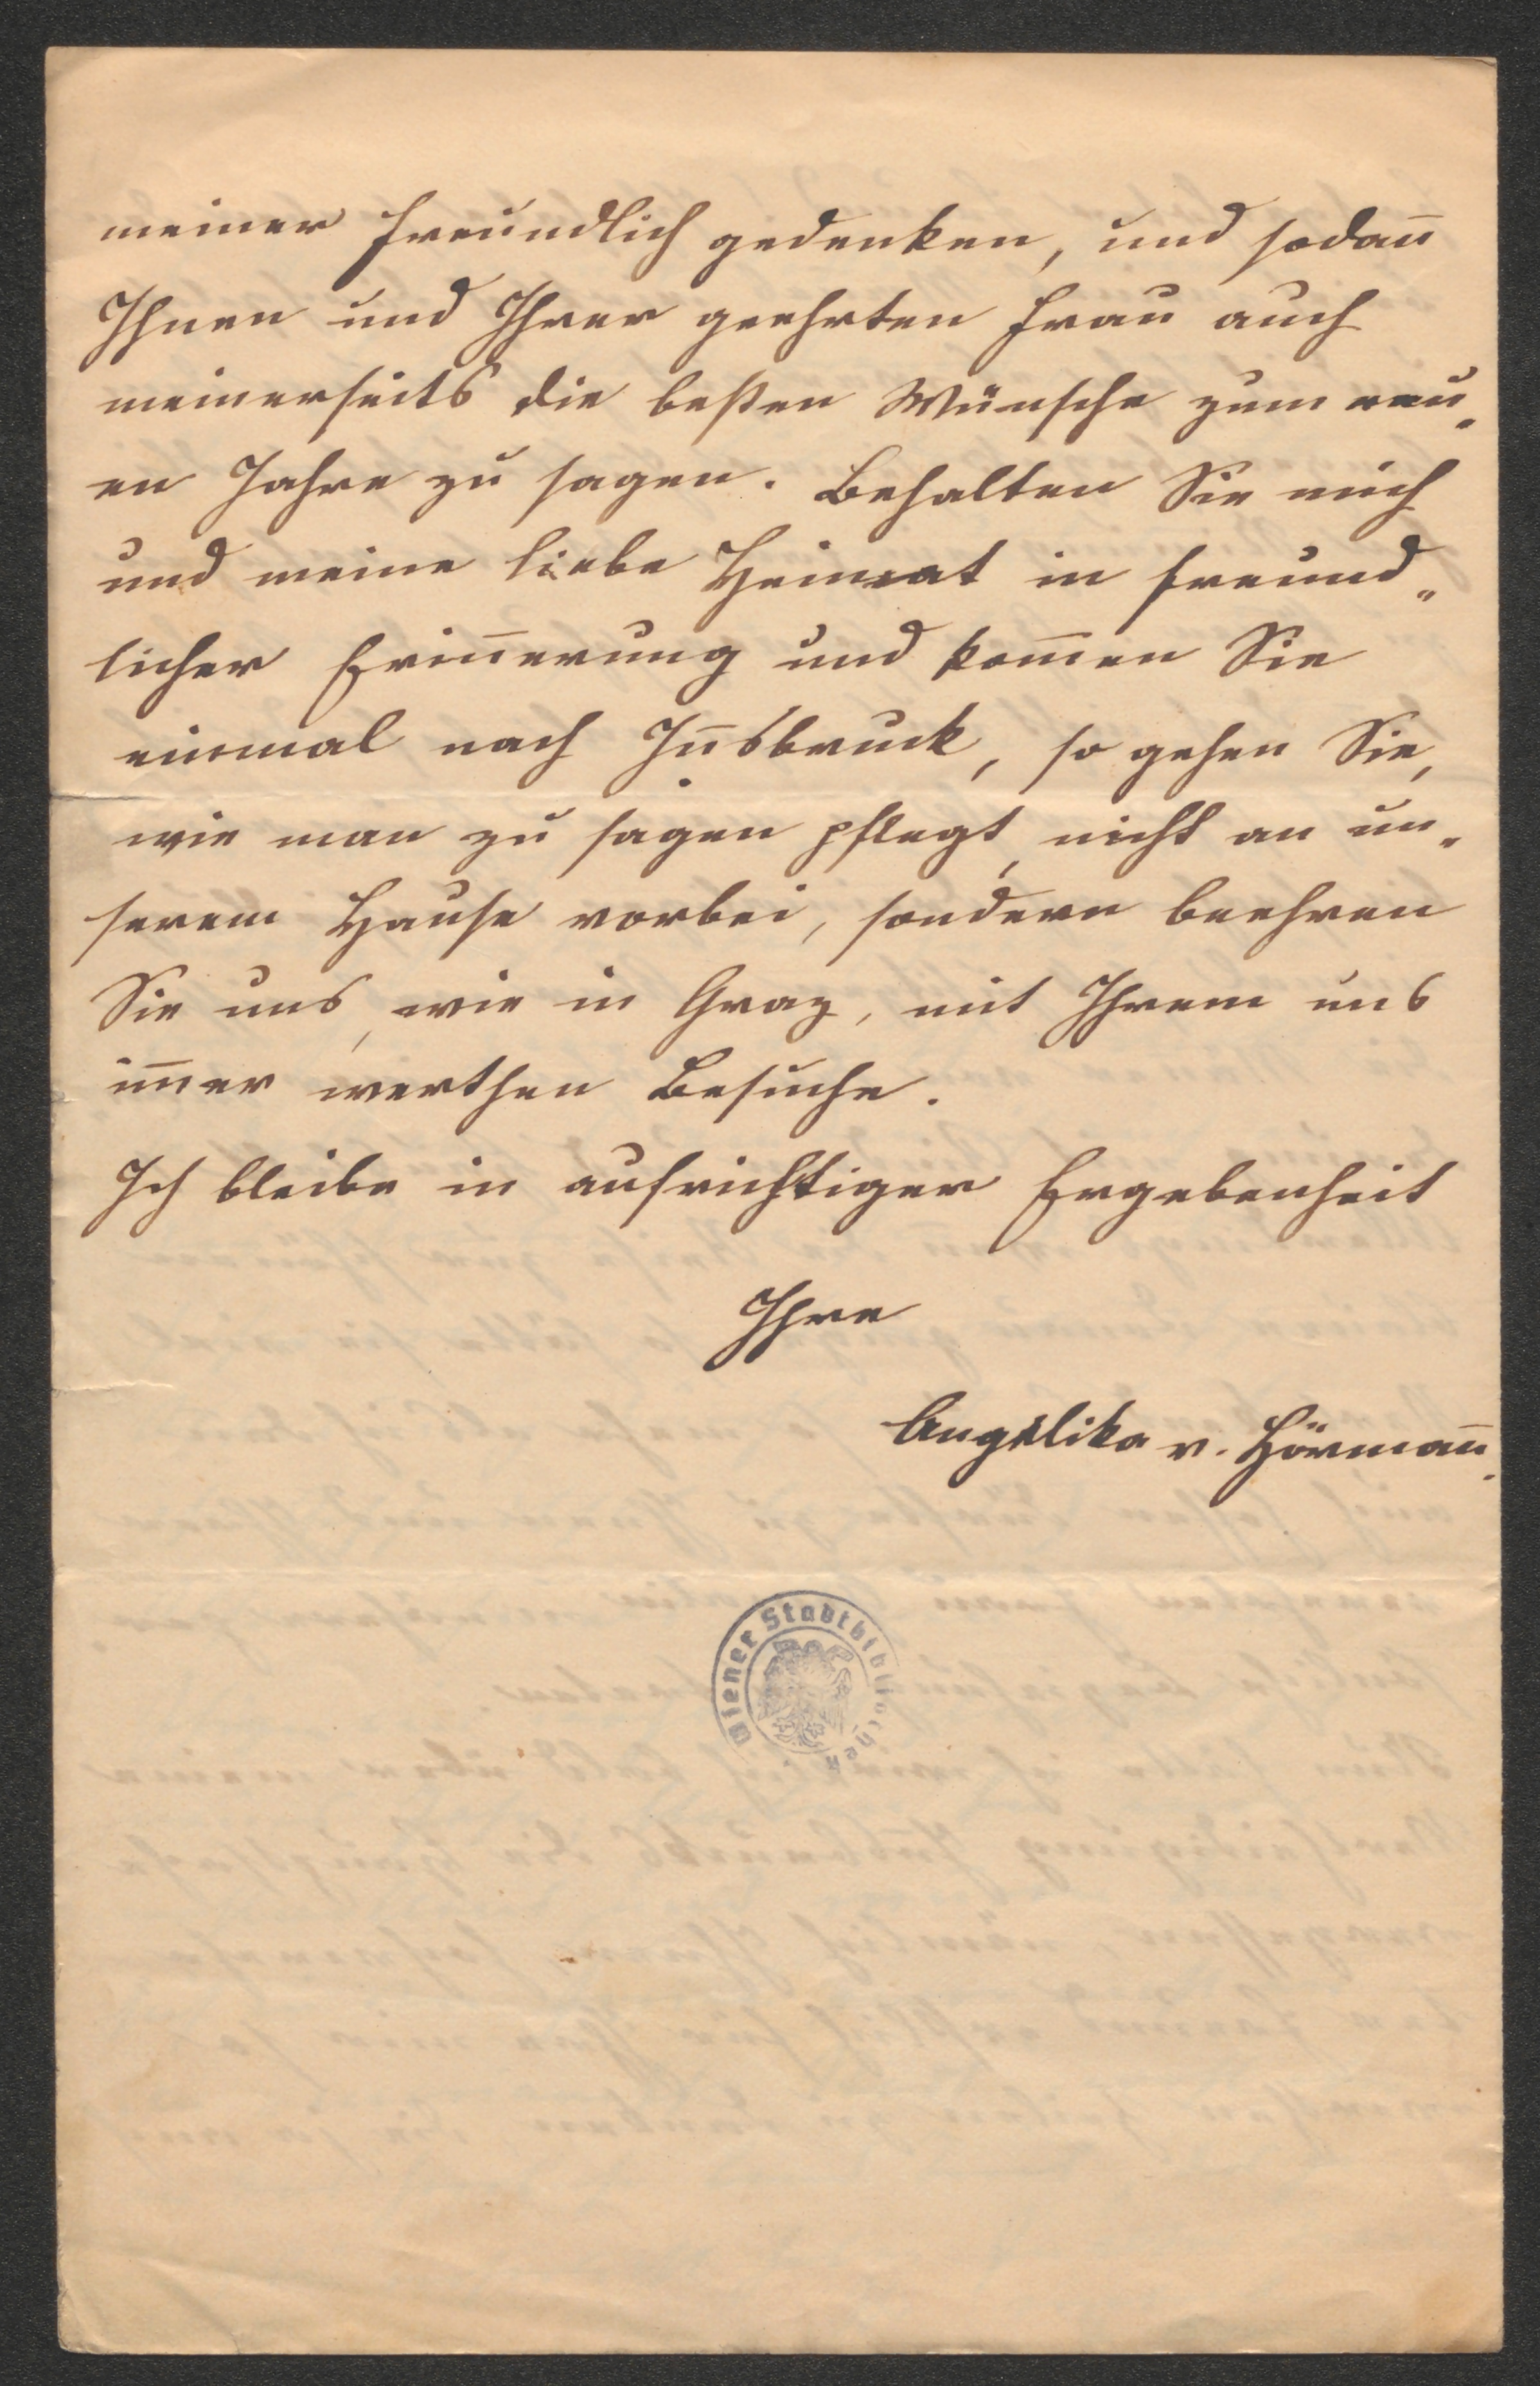 meiner freundlich gedenken, und sodan̄
Ihnen und Ihrer geehrten Frau auch
meinerseits die besten Wünsche zum neu„
en Jahre zu sagen. Behalten Sie mich
und meine liebe Heimat in freund„
licher Erin̄erung und kom̄en Sie
einmal nach In̄sbruck, so gehen Sie,
wie man zu sagen pflegt, nicht an un„
serem Hause vorbei, sondern beehren
Sie uns, wie in Graz, mit Ihrem uns
im̄er werthen Besuche.
Ich bleibe in aufrichtiger Ergebenheit
Ihre
Angelika v. Hörman̄.
Wiener Stadtbibliothek